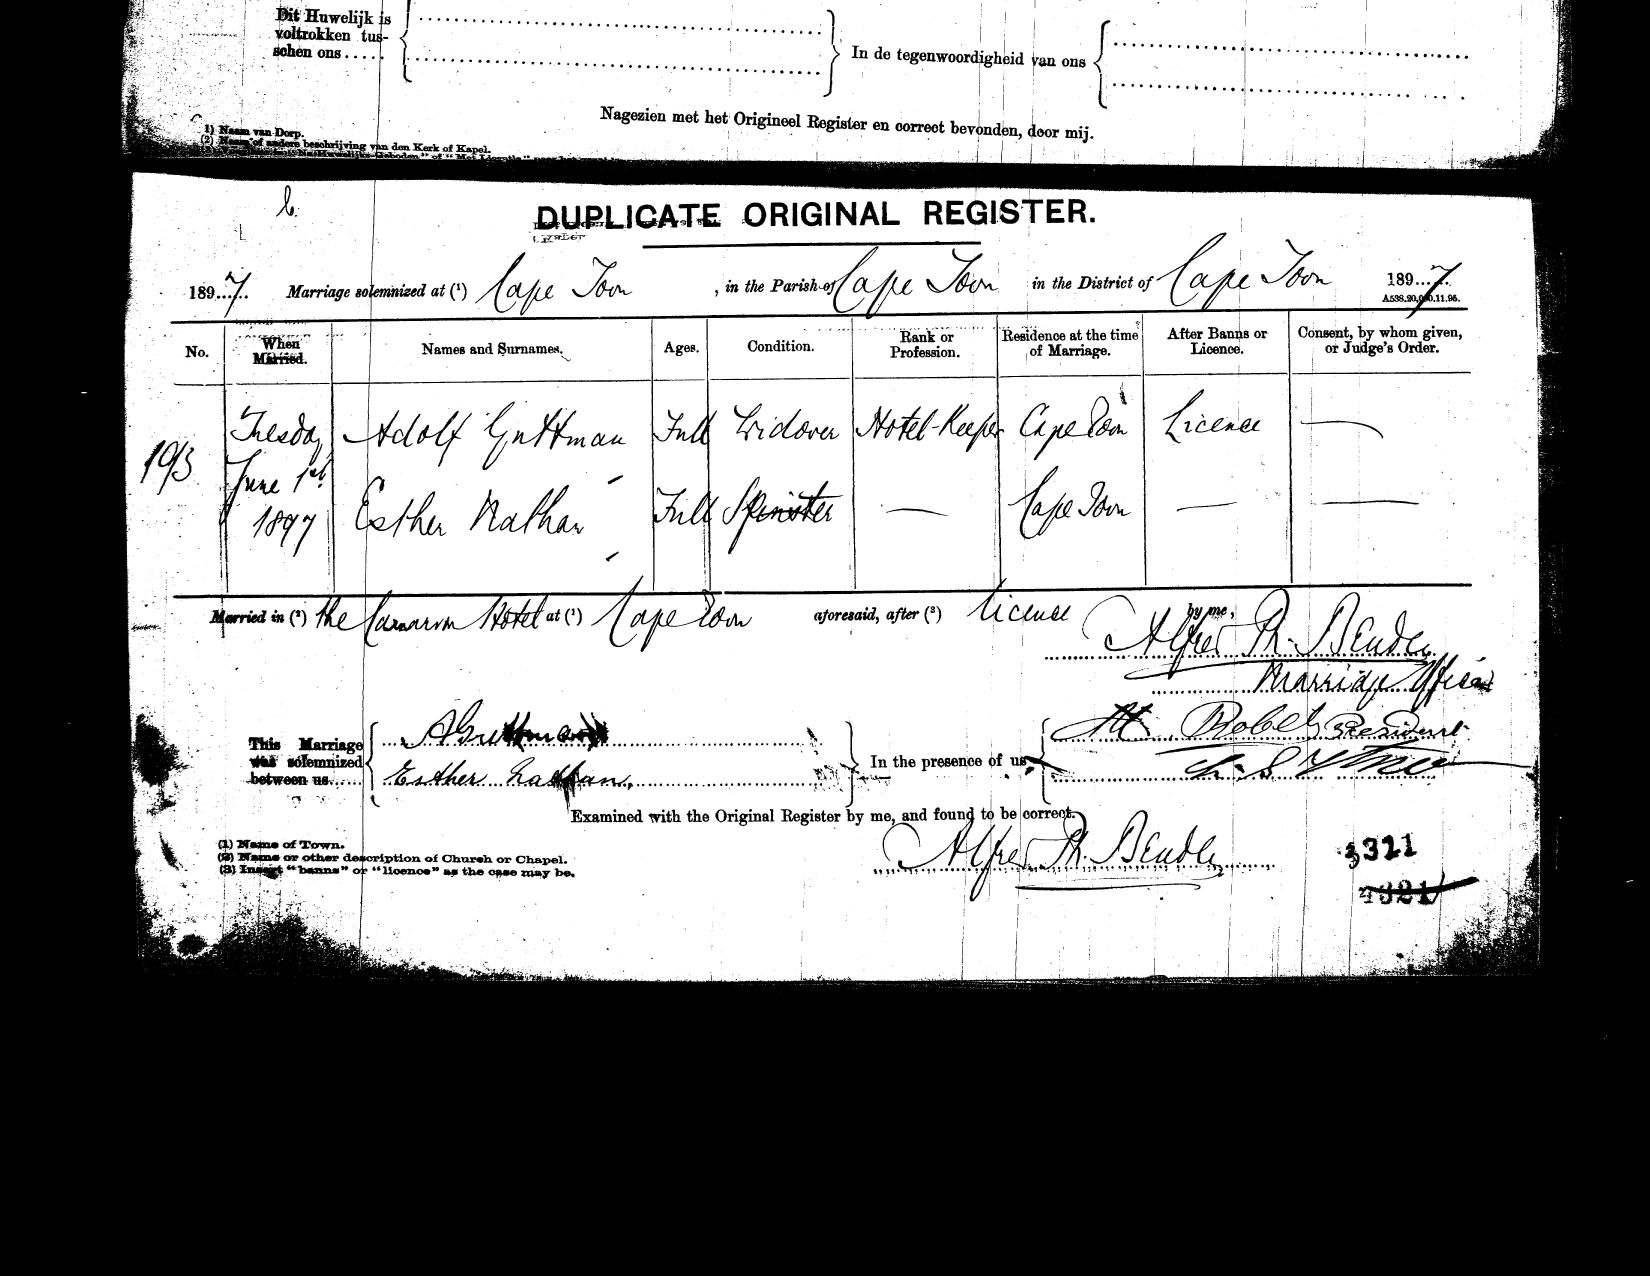 Dit Huwelijk is
voltrokken tus-
schen ons
In de tegenwoordigheid van ons
Nagezien met het Origineel Register en correct bevonden, door mij.
1) Naam van Dorp.
(2) Naam of andere beschrijving van den Kerk of Kapel.
DUPLICATE ORIGINAL REGISTER.
1897. Marriage solemnized at (1) Cape Town, in the Parish of Cape Town in the District of Cape Town 1897.
No. When Married. Names and Surnames. Ages. Condition. Rank or Profession. Residence at the time of Marriage. After Banns or Licence. Consent, by whom given, or Judge's Order.
Tuesday Adolf Guttman Full Widower Hotel-Keeper Cape Town Licence —
193
June 1st
1897 Esther Nathan Full Spinster — Cape Town — —
Married in (2) the Carnarvon Hotel at (1) Cape Town aforesaid, after (3) licence by me,
Alfred P. Bender
Marriage Officer
This Marriage
was solemnized
between us
A Guttman
Esther Nathan.
In the presence of us,
President
Examined with the Original Register by me, and found to be correct.
Alfred P. Bender
(1) Name of Town.
(2) Name or other description of Church or Chapel.
(3) Insert "banns" or "licence" as the case may be.
3321
4321